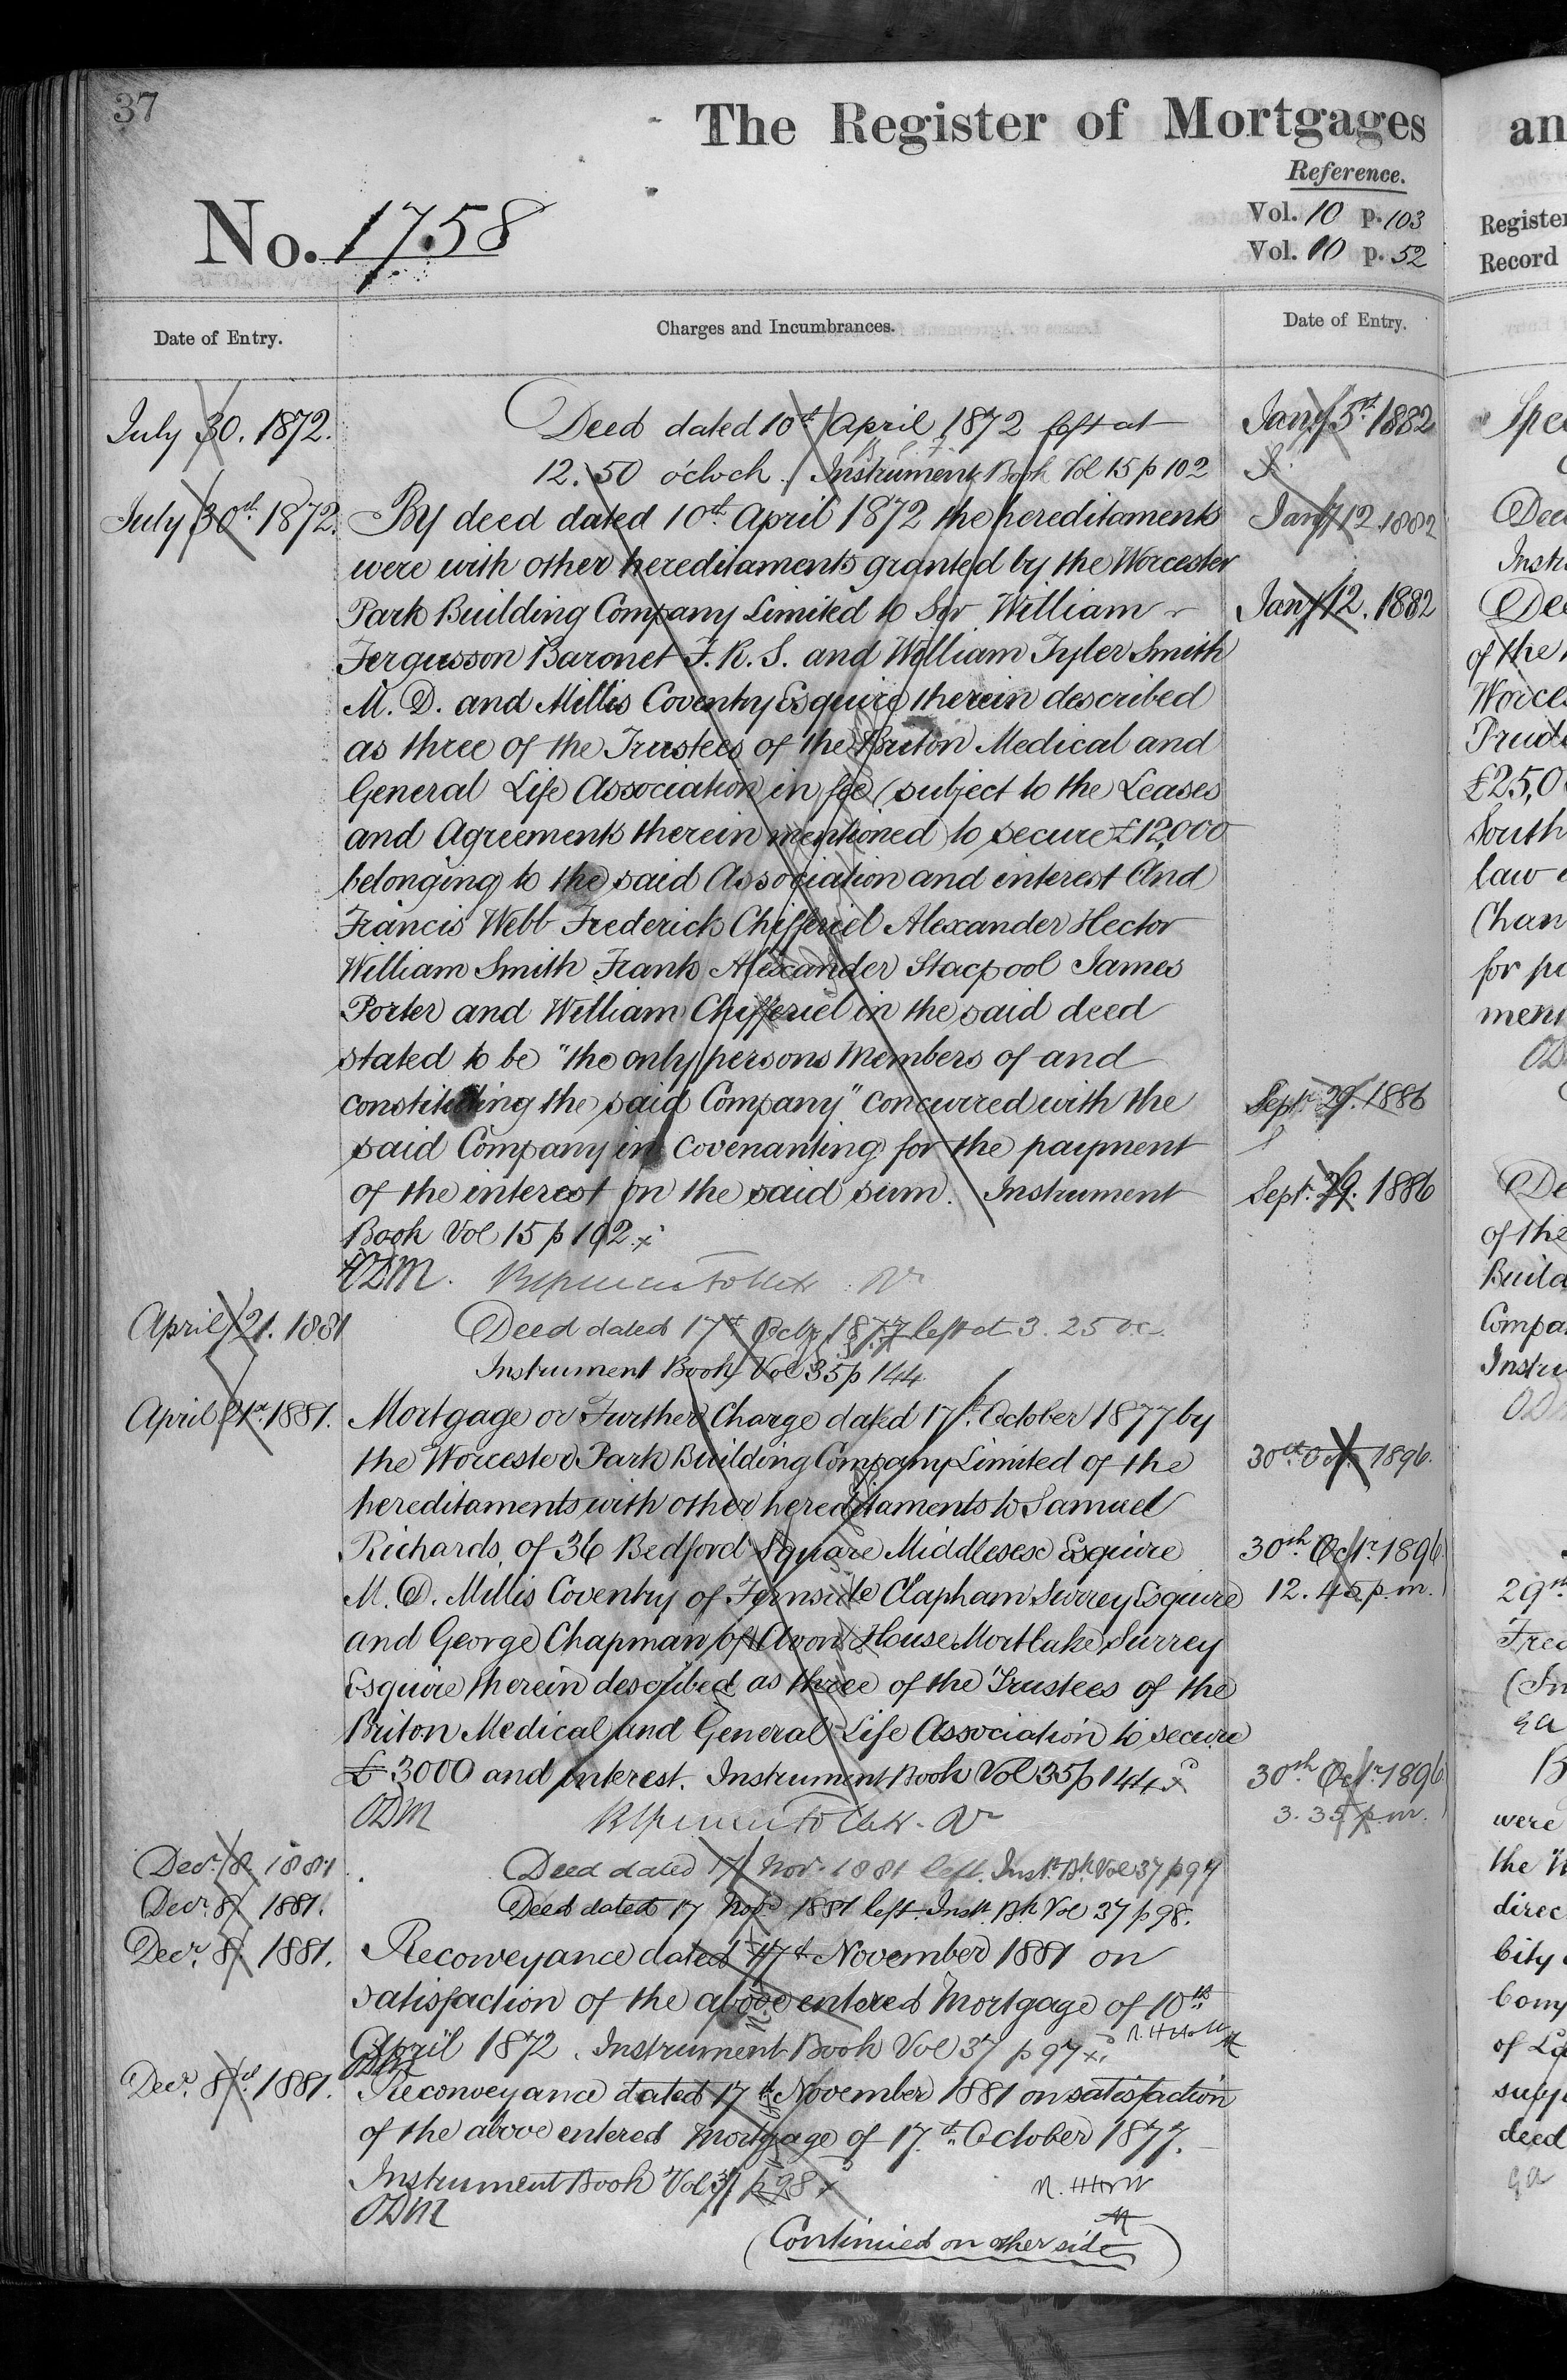 37
The Register of Mortgages
Reference.
Vol. 10 p. 103
Vol. 10 p. 52
No. 1758
Date of Entry.
Charges and Incumbrances.
Date of Entry.
July 30. 1872.
Deed dated 10th April 1872 left at
12.50 o'clock. Instrument Book Vol 15 p 102
July 30th 1872.
By deed dated 10th April 1872 the hereditaments
were with other hereditaments granted by the Worcester
Park Building Company Limited to Sir William
Fergusson Baronet F.R.S. and William Tyler Smith
M.D. and Millis Coventry Esquire therein described
as three of the Trustees of the Briton Medical and
General Life Association in fee (subject to the Leases
and Agreements therein mentioned) to secure £12,000
belonging to the said Association and interest And
Francis Webb Frederick Chifferiel Alexander Hector
William Smith Frank Alexander Stacpool James
Porter and William Chifferiel in the said deed
stated to be "the only persons Members of and
constituting the said Company" concurred with the
said Company in covenanting for the payment
of the interest on the said sum. Instrument
Book Vol 15 p 102 x
ODM.
April 21. 1881
Deed dated 17th Octr 1877 left at 3.25 o.c.
Instrument Book Vol 35 p 144
April 21st 1881.
Mortgage or Further Charge dated 17th October 1877 by
the Worcester Park Building Company Limited of the
hereditaments with other hereditaments to Samuel
Richards of 36 Bedford Square Middlesex Esquire
M.D. Millis Coventry of Fernside Clapham Surrey Esquire
and George Chapman of Avon House Mortlake Surrey
Esquire therein described as three of the Trustees of the
Briton Medical and General Life Association to secure
£3000 and interest. Instrument Book Vol 35 p 144 x
ODM
Decr. 8 1881
Deed dated 17 Nov. 1881 left. Inst. Bk. Vol 37 p 97
Decr. 8 1881.
Deed dated 17 Nov. 1881 left. Inst. Bk Vol 37 p 98.
Decr. 8 1881.
Reconveyance dated 17th November 1881 on
satisfaction of the above entered Mortgage of 10th
April 1872. Instrument Book Vol 37 p 97 x
ODM
Decr. 8th 1881.
Reconveyance dated 17th November 1881 on satisfaction
of the above entered Mortgage of 17th October 1877.
Instrument Book Vol 37 p 98 x
ODM
(Continued on other side)
Jany 5th 1882
Jany 12. 1882
Jany 12. 1882
Sept. 29. 1886
Sept. 29. 1886
30th Oct. 1896.
30th Octr. 1896
12.45 p.m.
30th Octr. 1896
3.35 p.m.
an
Register
Record
Spe
Dee
Instr
Dee
of the
Worces
Prude
£25,0
South
law
Chan
for pa
ment
OD
De
of the
Build
Compa
Instru
OD
29th
Fred
(In
ga
B
were
the W
direc
City
Comp
of L
subje
deed
ga